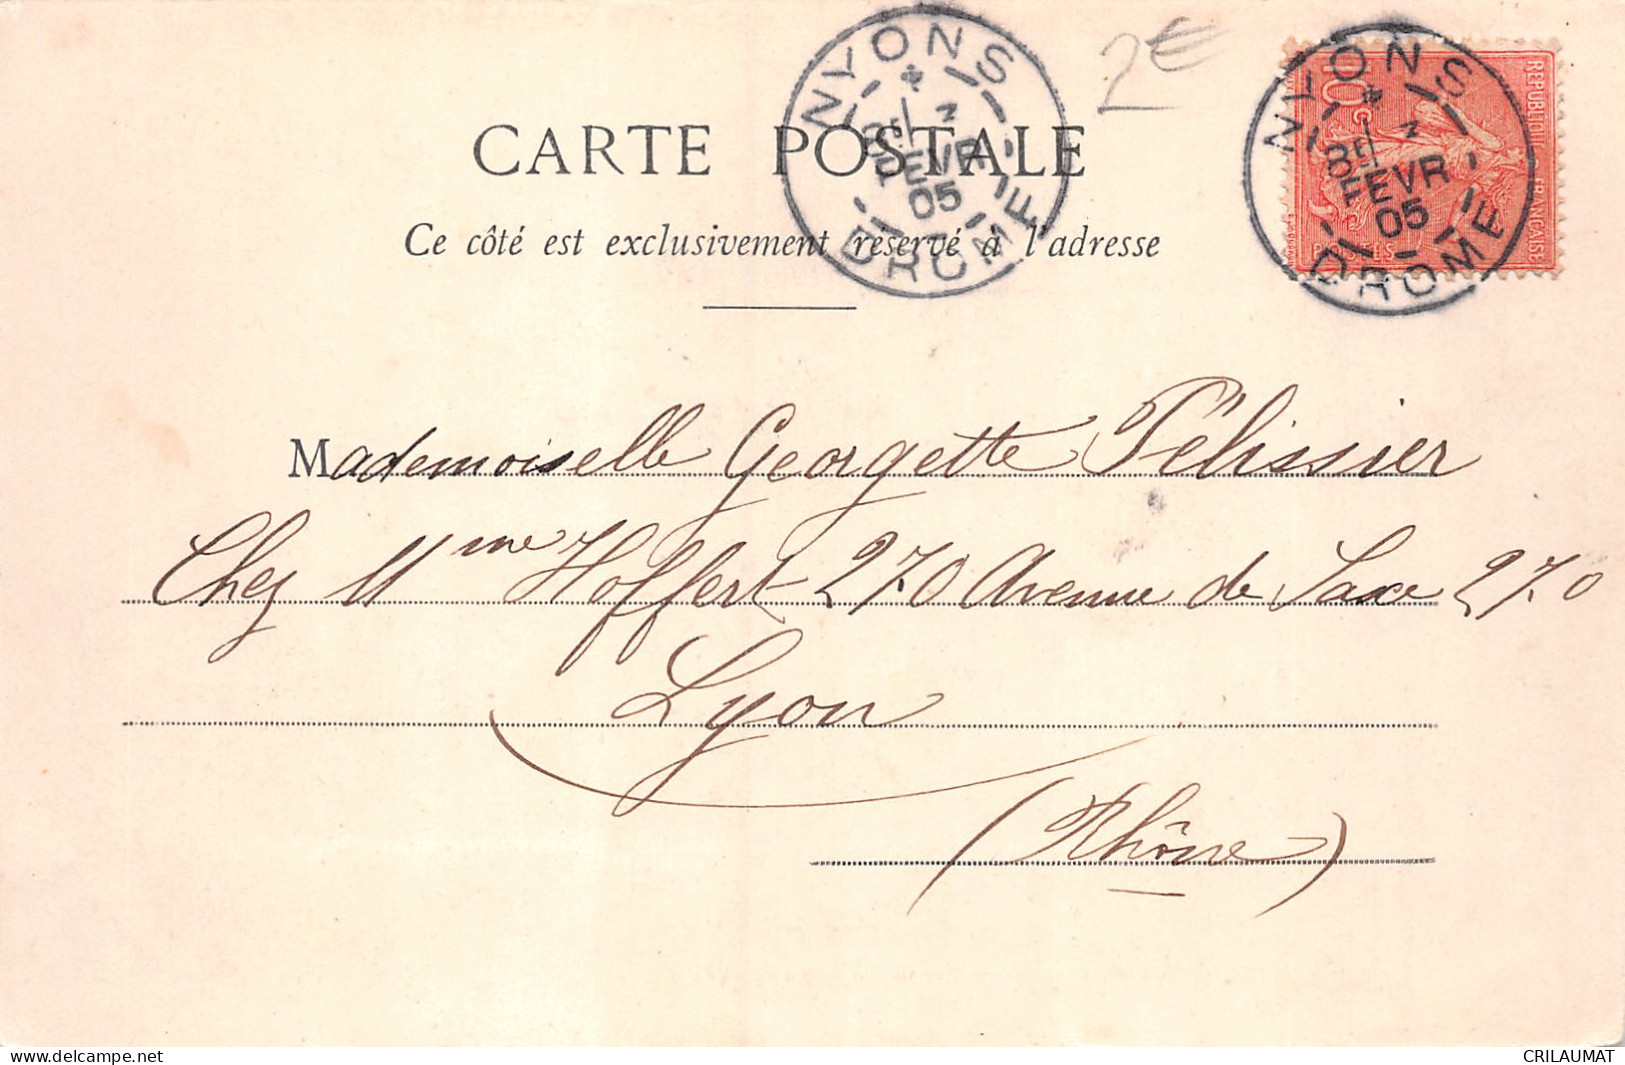 NYONS
8E/ 3
FEVR
05
DROME
2€
NYONS
8E/ 3
FEVR
05
DROME
10c
REPUBLIQUE FRANÇAISE
POSTES
CARTE POSTALE
Ce côté est exclusivement réservé à l'adresse
Mademoiselle Georgette Pélissier
Chez Mme Hoffert 270 Avenue de Saxe 270
Lyon
(Rhône)
www.delcampe.net
CRILAUMAT